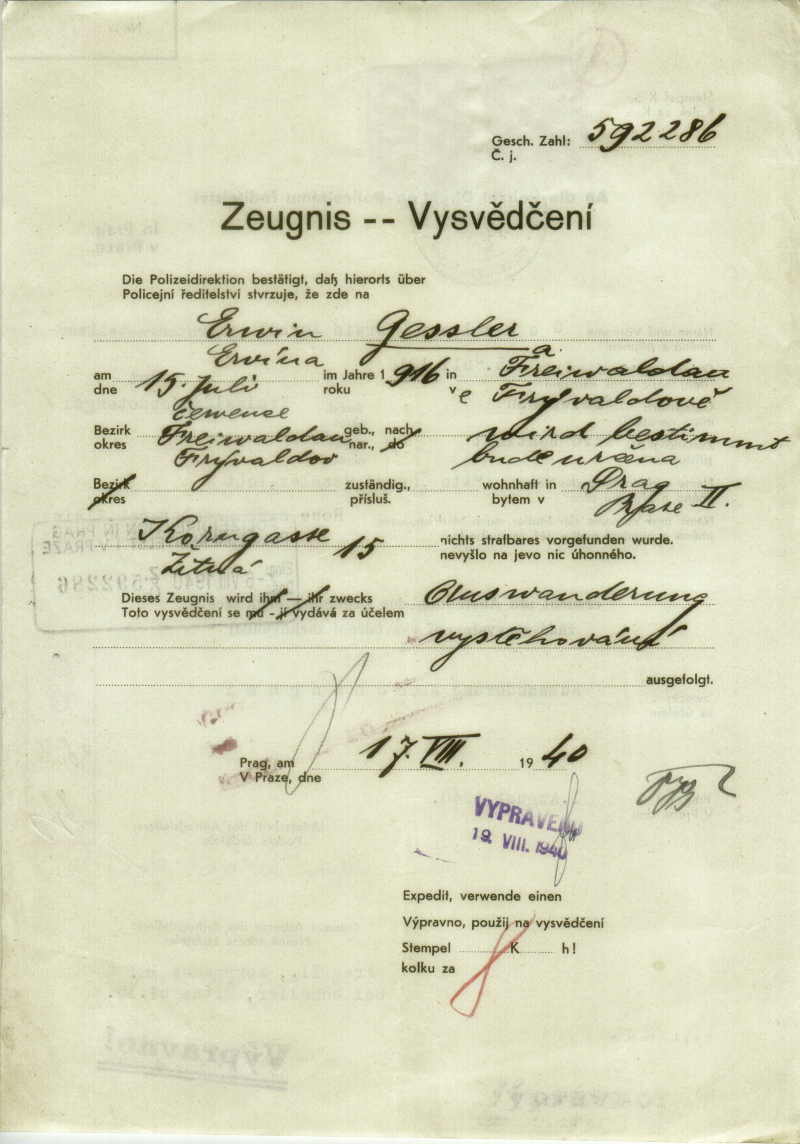 Gesch. Zahl: 592286
Č. j.
Zeugnis -- Vysvědčení
Die Polizeidirektion bestätigt, daß hierorts über
Policejní ředitelství stvrzuje, že zde na
Erwin Gessler
Ervína a
am 15. Juli im Jahre 1916 in Freiwaldau
dne července roku v e Frývaldově
Bezirk Freiwaldau geb., nach wird bestimmt
okres Frývaldov nar., do bude určena
Bezirk zuständig., wohnhaft in Prag II.
okres přísluš. bytem v Praze
Korngasse 15 nichts strafbares vorgefunden wurde.
Žitná nevyšlo na jevo nic úhonného.
Dieses Zeugnis wird ihm — ihr zwecks Auswanderung
Toto vysvědčení se mu - jí vydává za účelem
vystěhování
ausgefolgt.
Prag, am 17. VIII. 1940
V Praze, dne
VYPRAVENO
19. VIII. 1940
Expedit, verwende einen
Výpravno, použij na vysvědčení
Stempel K h!
kolku za